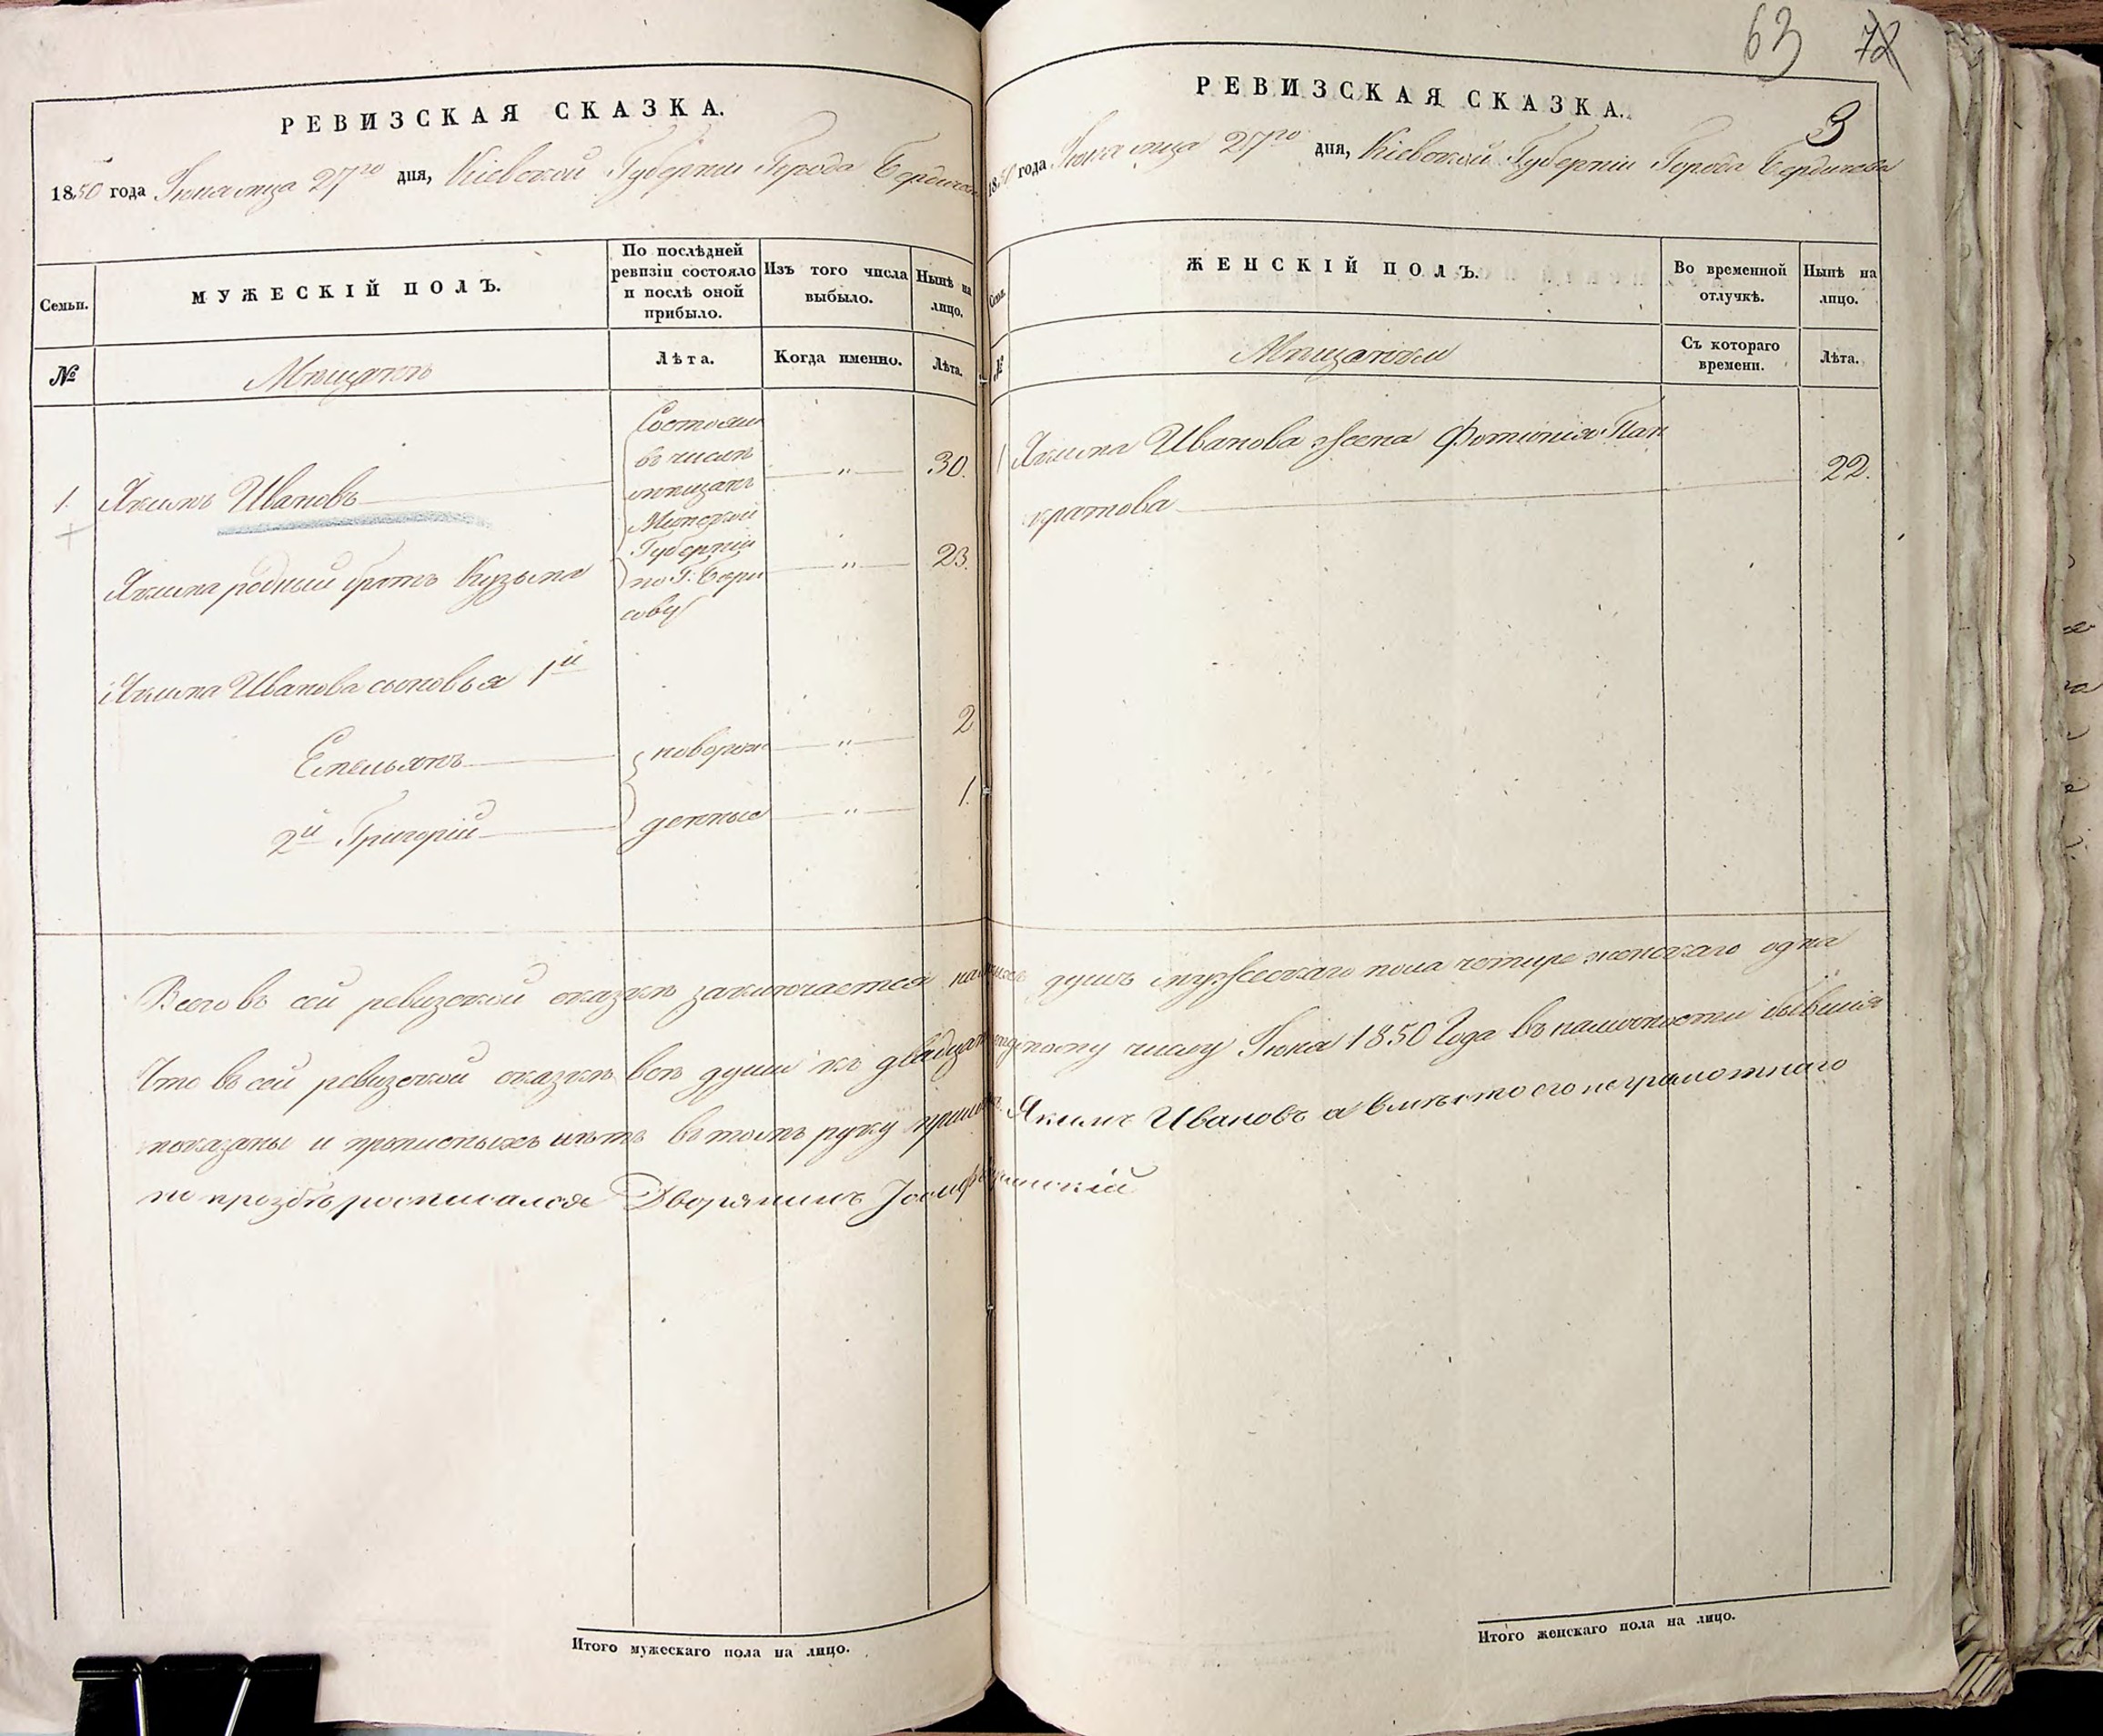 РЕВИЗСКАЯ СКАЗКА.
1850 года Іюня мца 27го дня, Кіевской Губерніи Города Бердичева
Семьи.
МУЖЕСКІЙ ПОЛЪ.
По послѣдней
ревизіи состояло
и послѣ оной
прибыло.
Изъ того числа
выбыло.
Нынѣ на
лицо.
№
Мѣщанъ
Лѣта.
Когда именно.
Лѣта.
1. Якимъ Ивановъ
Состояли
въ числѣ
мѣщанъ
Минской
Губерніи
по Г: Бори
сову
" 30.
Якима родный братъ Кузьма " 23.
Якима Иванова сыновья 1й
Емельянъ новорож " 2
2й Григорій денные " 1.
63 72
РЕВИЗСКАЯ СКАЗКА.
3
1850 года Іюня мца 27го дня, Кіевской Губерніи Города Бердичева
Семьи.
ЖЕНСКІЙ ПОЛЪ.
Во временной
отлучкѣ.
Нынѣ на
лицо.
№
Мѣщанки
Съ котораго
времени.
Лѣта.
1 Якима Иванова жена Фотинія Пан
кратова 22.
Всего въ сей ревизской сказкѣ заключается душъ мужескаго пола четыре женскаго одна
Что въ сей ревизской сказкѣ всѣ души къ числу Іюня 1850 Года въ наличности бывшія
показаны и прописныхъ нѣтъ въ томъ руку Якимъ Ивановъ а вмѣсто его неграмотнаго
по прозбѣ росписался Дворянинъ Іосиф
Итого мужескаго пола на лицо.
Итого женскаго пола на лицо.